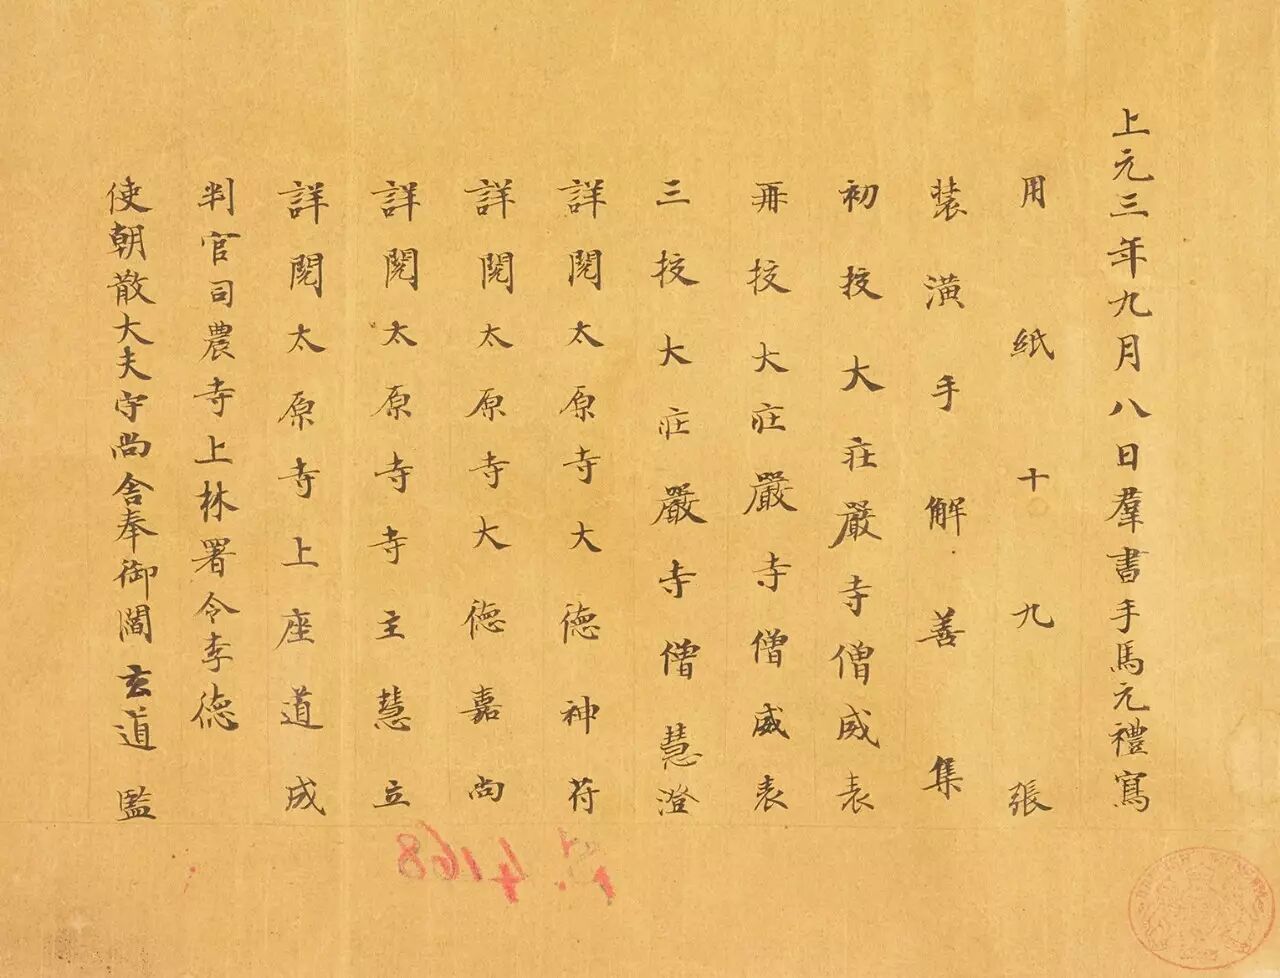 上元三年九月八日羣書手馬元禮寫
用紙十九張
裝潢手解善集
初挍大莊嚴寺僧威表
再挍大莊嚴寺僧威表
三挍大莊嚴寺僧慧澄
詳閱太原寺大德神苻
詳閱太原寺大德嘉尚
詳閱太原寺寺主慧立
詳閱太原寺上座道成
判官司農寺上林署令李德
使朝散大夫守尚舍奉御閻玄道監
4168